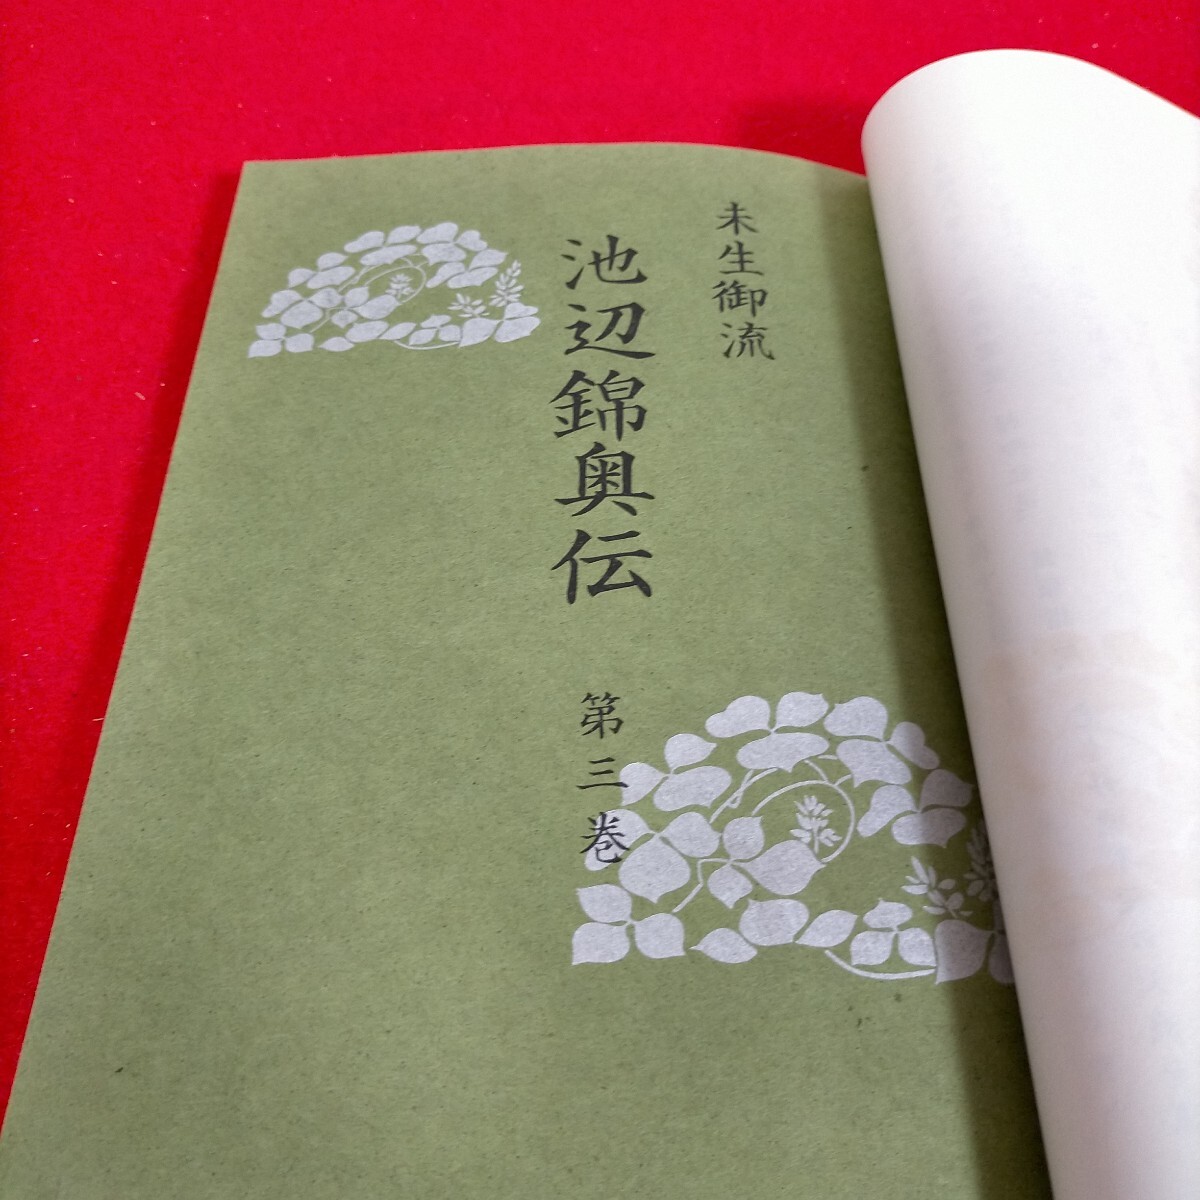 未生御流
池辺錦奥伝 第三巻